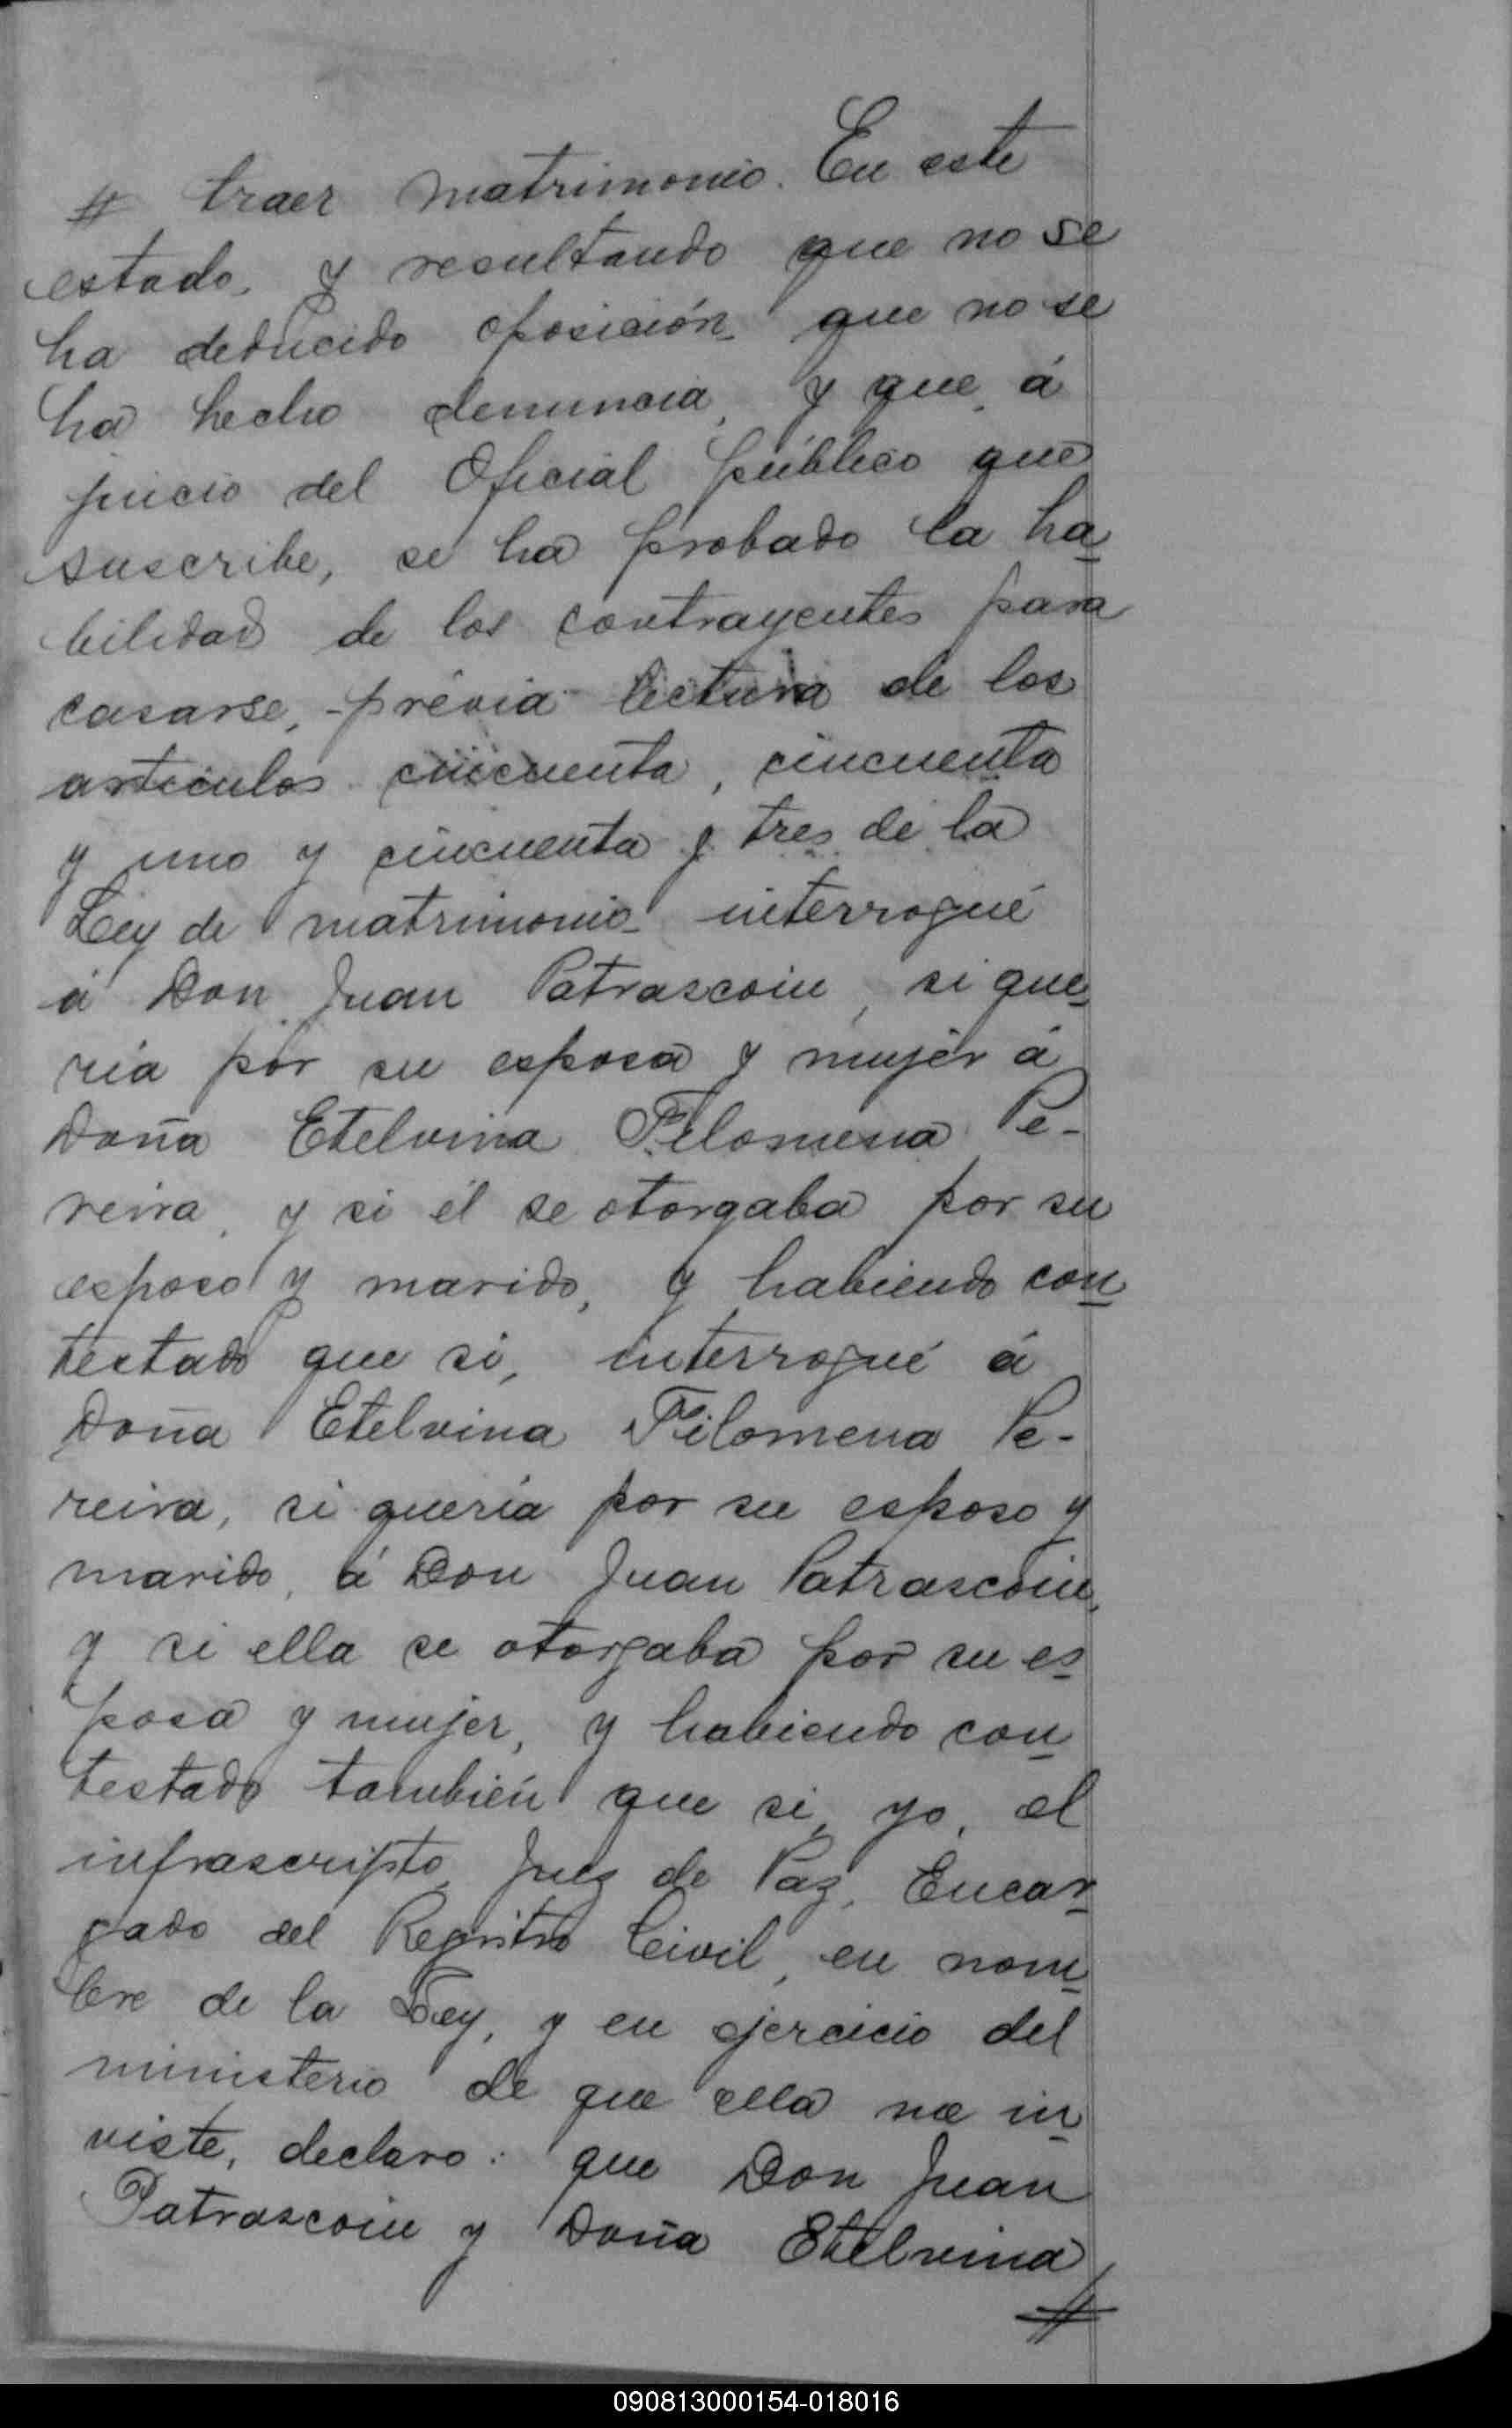 # traer matrimonio. En este
estado, y resultando que no se
ha deducido oposición que no se
ha hecho denuncia, y que, á
juicio del Oficial público que
suscribe, se ha probado la ha-
bilidad de los contrayentes para
casarse, prévia lectura de los
artículos cincuenta, cincuenta
y uno y cincuenta y tres de la
Ley de matrimonio interrogué
á Don Juan Patrascoiu, si que-
ría por su esposa y mujer á
Doña Etelvina Filomena Pe-
reira, y si él se otorgaba por su
esposo y marido, y habiendo con-
testado que si, interrogué á
Doña Etelvina Filomena Pe-
reira, si quería por su esposo y
marido, á Don Juan Patrascoiu,
y si ella se otorgaba por su es-
posa y mujer, y habiendo con-
testado también que si, yo, el
infrascripto Juez de Paz, Encar-
gado del Registro Civil, en nom-
bre de la Ley, y en ejercicio del
ministerio de que ella me in-
viste, declaro: que Don Juan
Patrascoiu y Doña Etelvina
#
090813000154-018016